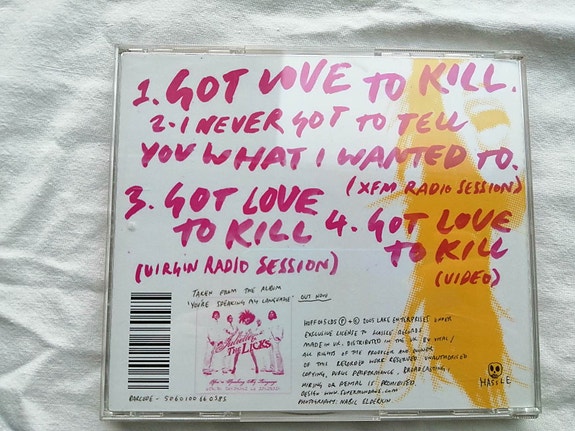 1. GOT LOVE TO KILL.
2. I NEVER GOT TO TELL
YOU WHAT I WANTED TO.
(XFM RADIO SESSION)
3. GOT LOVE
TO KILL
(VIRGIN RADIO SESSION)
4. GOT LOVE
TO KILL
(VIDEO)
TAKEN FROM THE ALBUM
'YOU'RE SPEAKING MY LANGUAGE' OUT NOW
Juliette
and
The Licks
You're Speaking My Language
BARCODE - 5060100660385
HOFF015CDS Ⓟ + © 2005 LAKE ENTERPRISES UNDER
EXCLUSIVE LICENSE TO HASSLE RECORDS
MADE IN UK. DISTRIBUTED IN THE UK BY VITAL/
ALL RIGHTS OF THE PRODUCER AND OWNER
OF THIS RECORDED WORK RESERVED. UNAUTHORISED
COPYING, PUBLIC PERFORMANCE, BROADCASTING,
HIRING OR RENTAL IS PROHIBITED.
DESIGN WWW.SUPERMUNDANE.COM
PHOTOGRAPHY: NABIL ELDERKIN
HASSLE